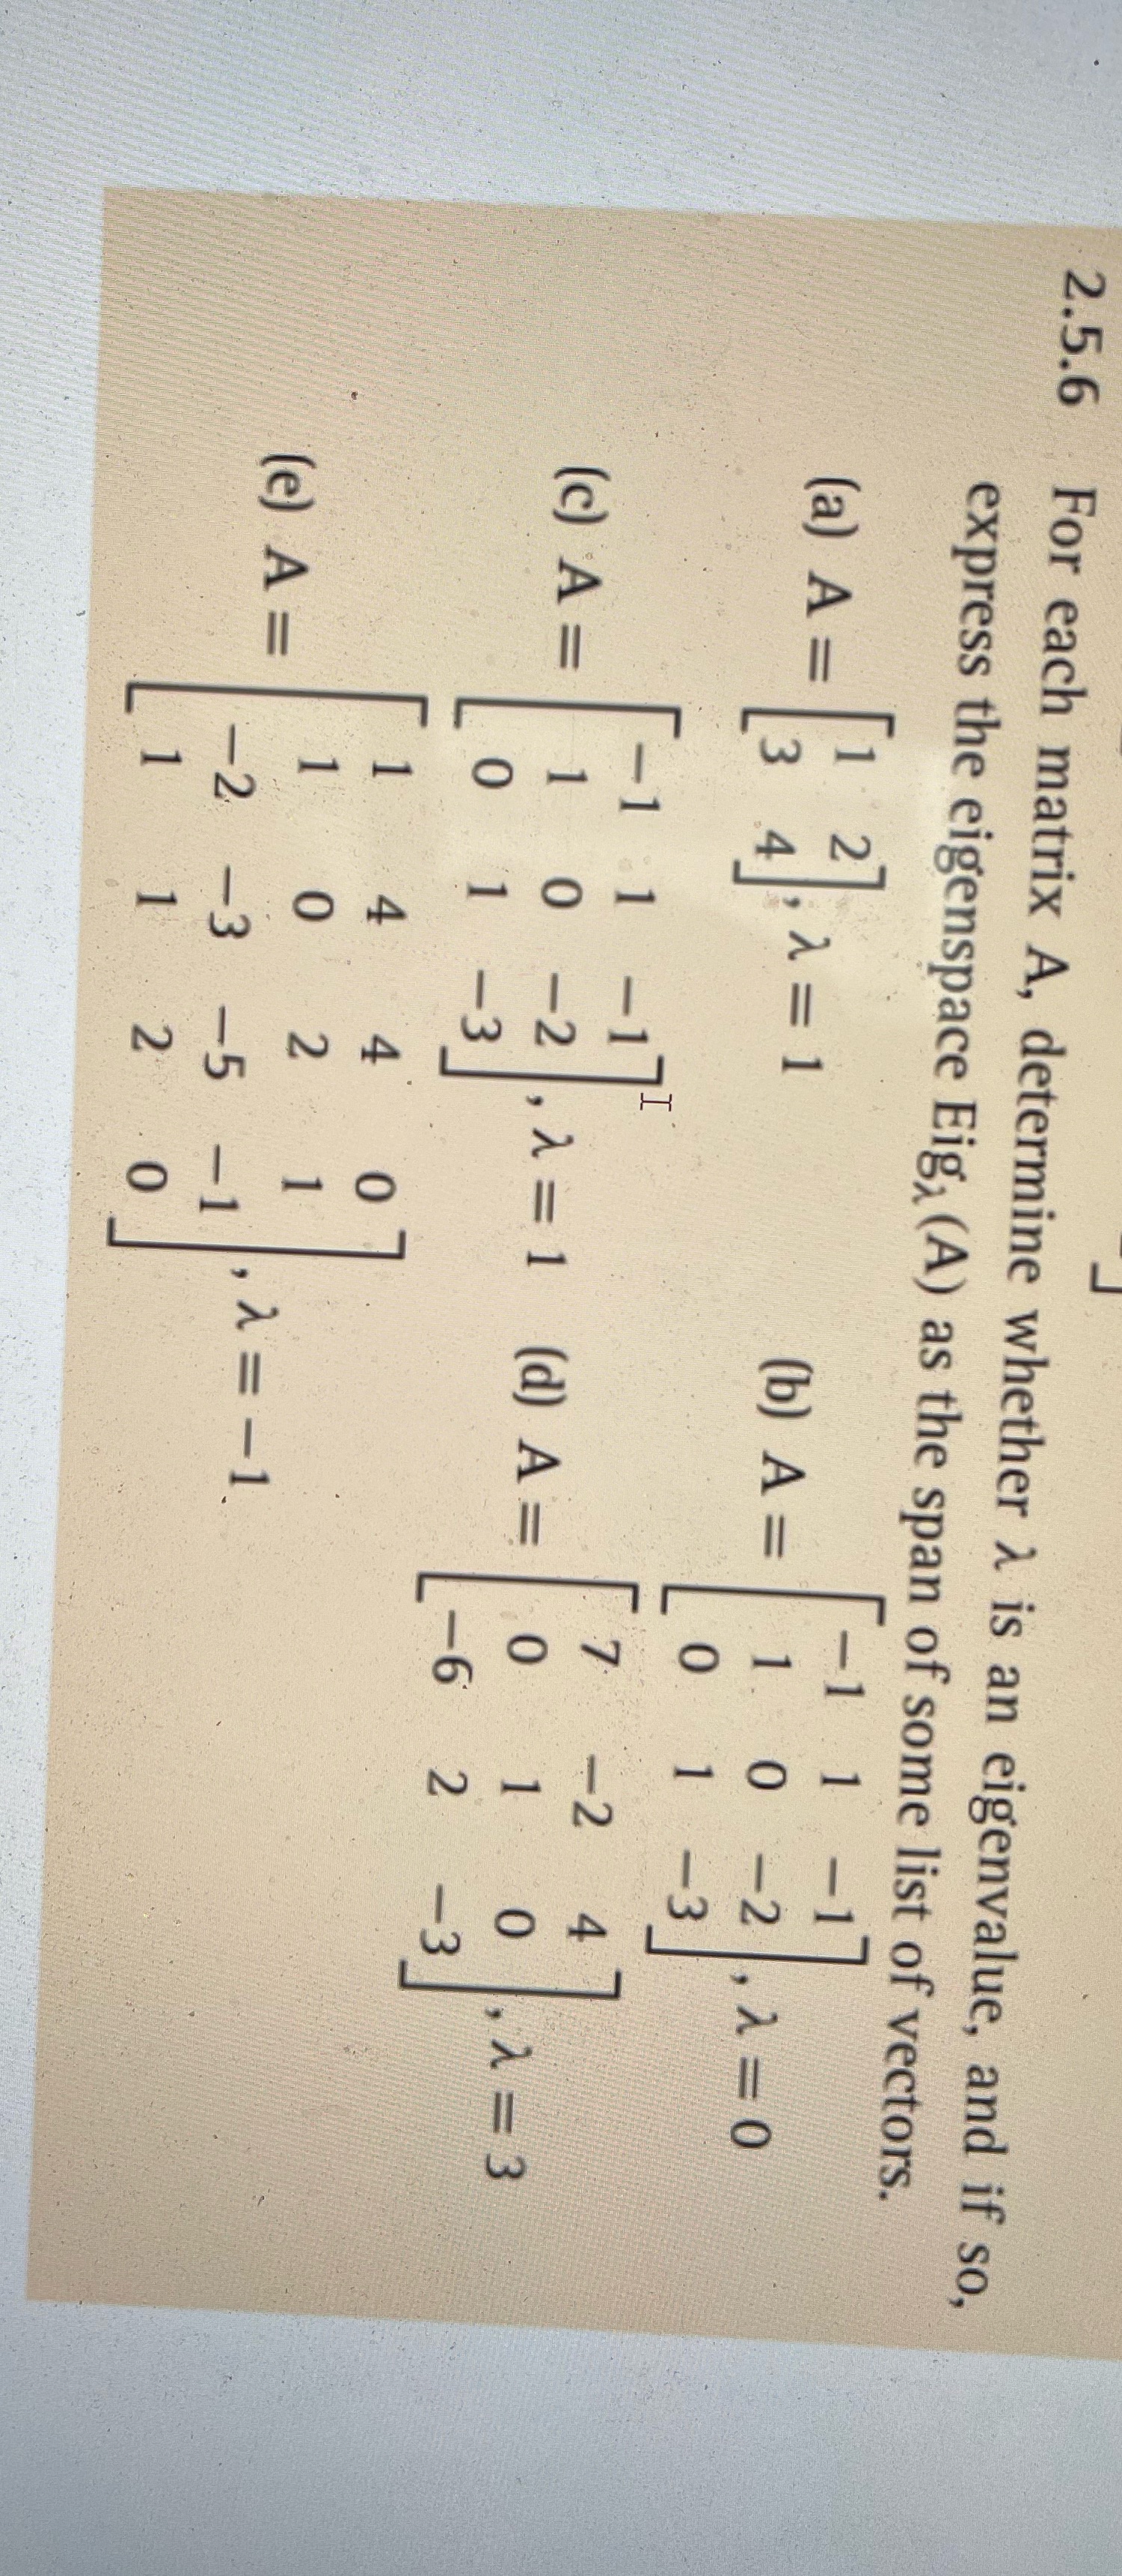 2.5.6 For each matrix A, determine whether λ is an eigenvalue, and if so,
express the eigenspace Eig_λ(A) as the span of some list of vectors.
(a) A = [1 2; 3 4], λ = 1 (b) A = [−1 1 −1; 1 0 −2; 0 1 −3], λ = 0
(c) A = [−1 1 −1; 1 0 −2; 0 1 −3], λ = 1 (d) A = [7 −2 4; 0 1 0; −6 2 −3], λ = 3
(e) A = [1 4 4 0; 1 0 2 1; −2 −3 −5 −1; 1 1 2 0], λ = −1